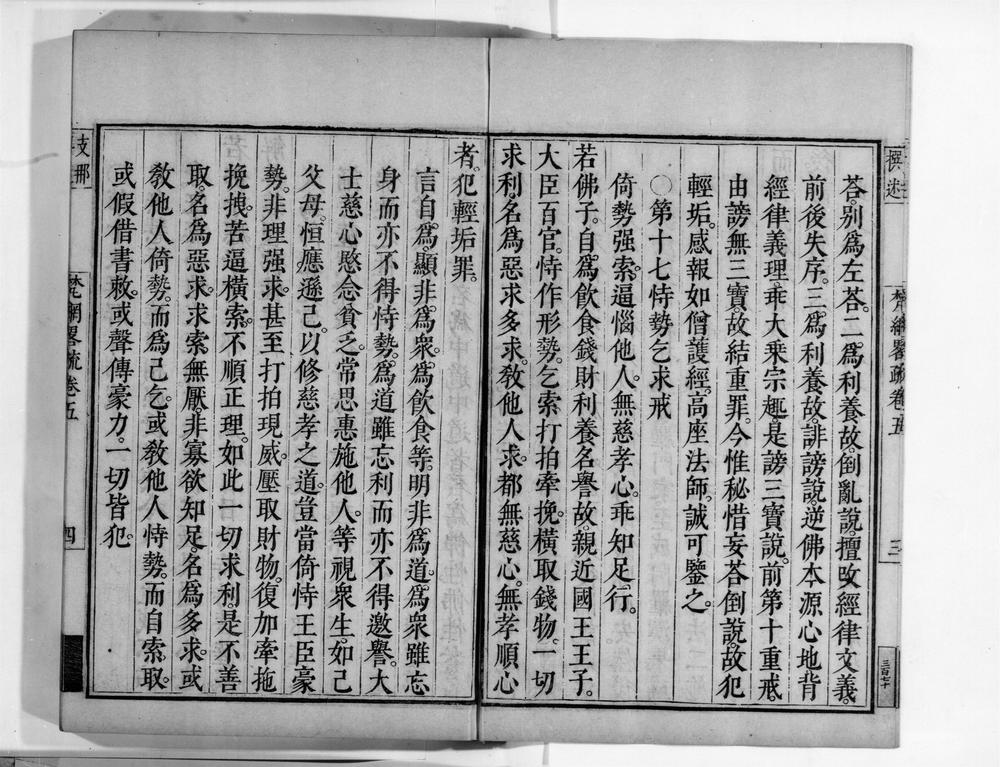 撰述
梵網畧疏卷五
三
三百七十
荅。别爲左荅。二。爲利養故。倒亂說。擅攺經律文義。
前後失序。三爲利養故。誹謗說。逆佛本源心地。背
經律義理。乖大乗宗趣。是謗三寶說。前第十重戒。
由謗無三寶。故結重罪。今惟秘惜妄荅倒說。故犯
輕垢。感報如僧護經。高座法師。誠可鑒之。
○第十七恃勢乞求戒
倚勢强索。逼惱他人。無慈孝心。乖知足行。
若佛子。自爲飲食錢財利養名譽故。親近國王王子。
大臣百官。恃作形勢。乞索打拍牽挽。橫取錢物。一切
求利。名爲惡求多求。敎他人求。都無慈心。無孝順心
者。犯輕垢罪。
言自。爲。顯非。爲衆。爲飲食等。明非爲道。爲衆雖忘
身而亦不得恃勢。爲道雖忘利而亦不得邀譽。大
士慈心愍念貧乏。常思惠施他人。等視衆生。如己
父母。恒應遜己。以修慈孝之道。豈當倚恃王臣豪
勢。非理强求。甚至打拍現威。壓取財物。復加牽拖
挽拽。苦逼橫索。不順正理。如此一切求利。是不善
取。名爲惡求。求索無厭。非寡欲知足。名爲多求。或
敎他人倚勢。而爲己乞。或敎他人恃勢。而自索取。
或假借書敕。或聲傳豪力。一切皆犯。
支那
梵網畧疏卷五
四